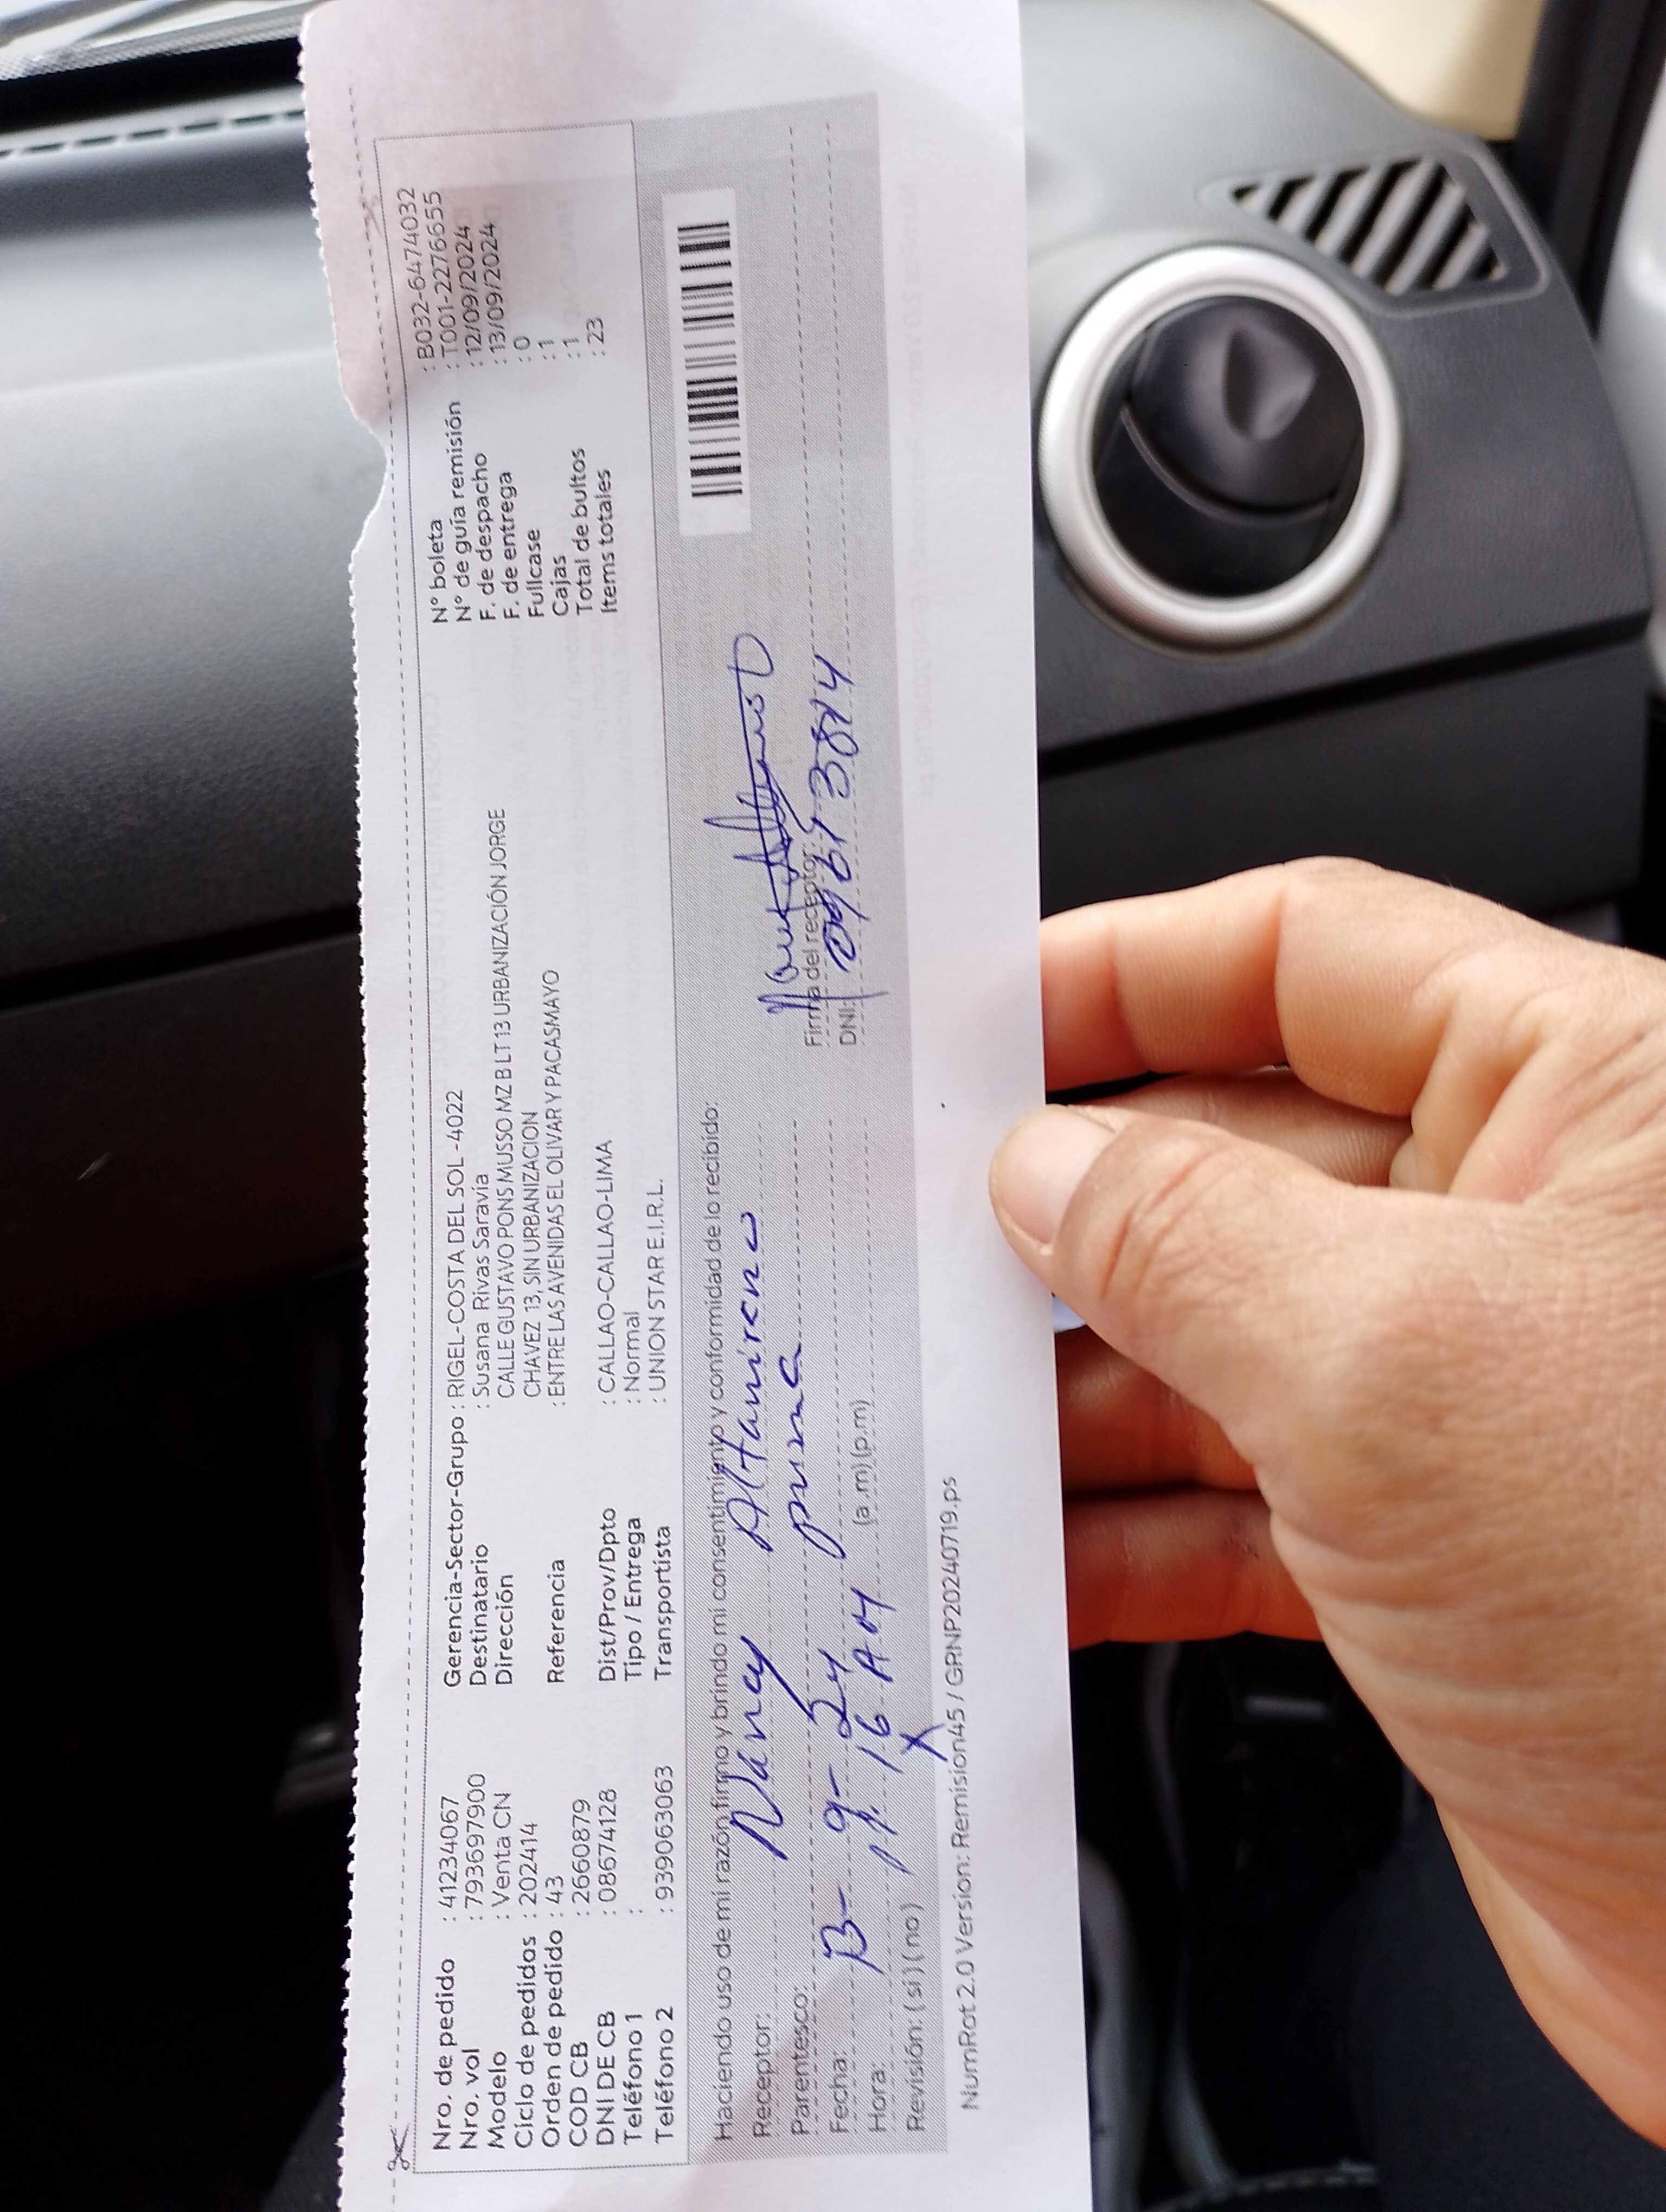 Nro. de pedido : 41234067
Nro. vol : 7936979700
Modelo : Venta CN
Ciclo de pedidos : 202414
Orden de pedido : 43
COD CB : 2660879
DNI DE CB : 08674128
Teléfono 1 :
Teléfono 2 : 939063063
Gerencia-Sector-Grupo : RIGEL-COSTA DEL SOL -4022
Destinatario : Susana Rivas Saravia
Dirección CALLE GUSTAVO PONS MUSSO MZ B LT 13 URBANIZACIÓN JORGE
CHAVEZ 13, SIN URBANIZACION
Referencia : ENTRE LAS AVENIDAS EL OLIVAR Y PACASMAYO
Dist/Prov/Dpto : CALLAO-CALLAO-LIMA
Tipo / Entrega : Normal
Transportista : UNION STAR E.I.R.L.
N° boleta : B032-6474032
N° de guía remisión : T001-2276655
F. de despacho : 12/09/2024
F. de entrega : 13/09/2024
Fullcase : 0
Cajas : 1
Total de bultos : 1
Items totales : 23
Haciendo uso de mi razón firmo y brindo mi consentimiento y conformidad de lo recibido:
Receptor: Náncy Altamirano
Parentesco: prima
Fecha: 13- 9- 24
Hora: 11.16 AM (a.m)(p.m)
Revisión: (si)(no) X
Firma del receptor:
DNI:
NumRot 2.0 Version: Remision45 / GRNP20240719.ps